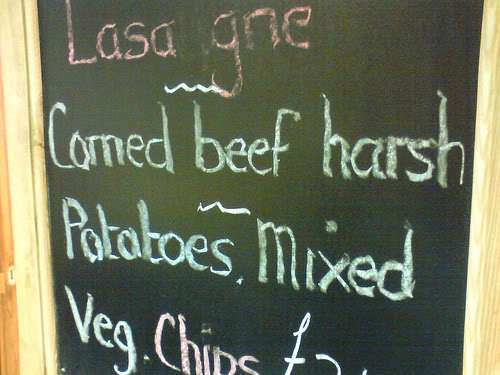 Lasagne
Corned beef harsh
Potatoes. Mixed
Veg. Chips £